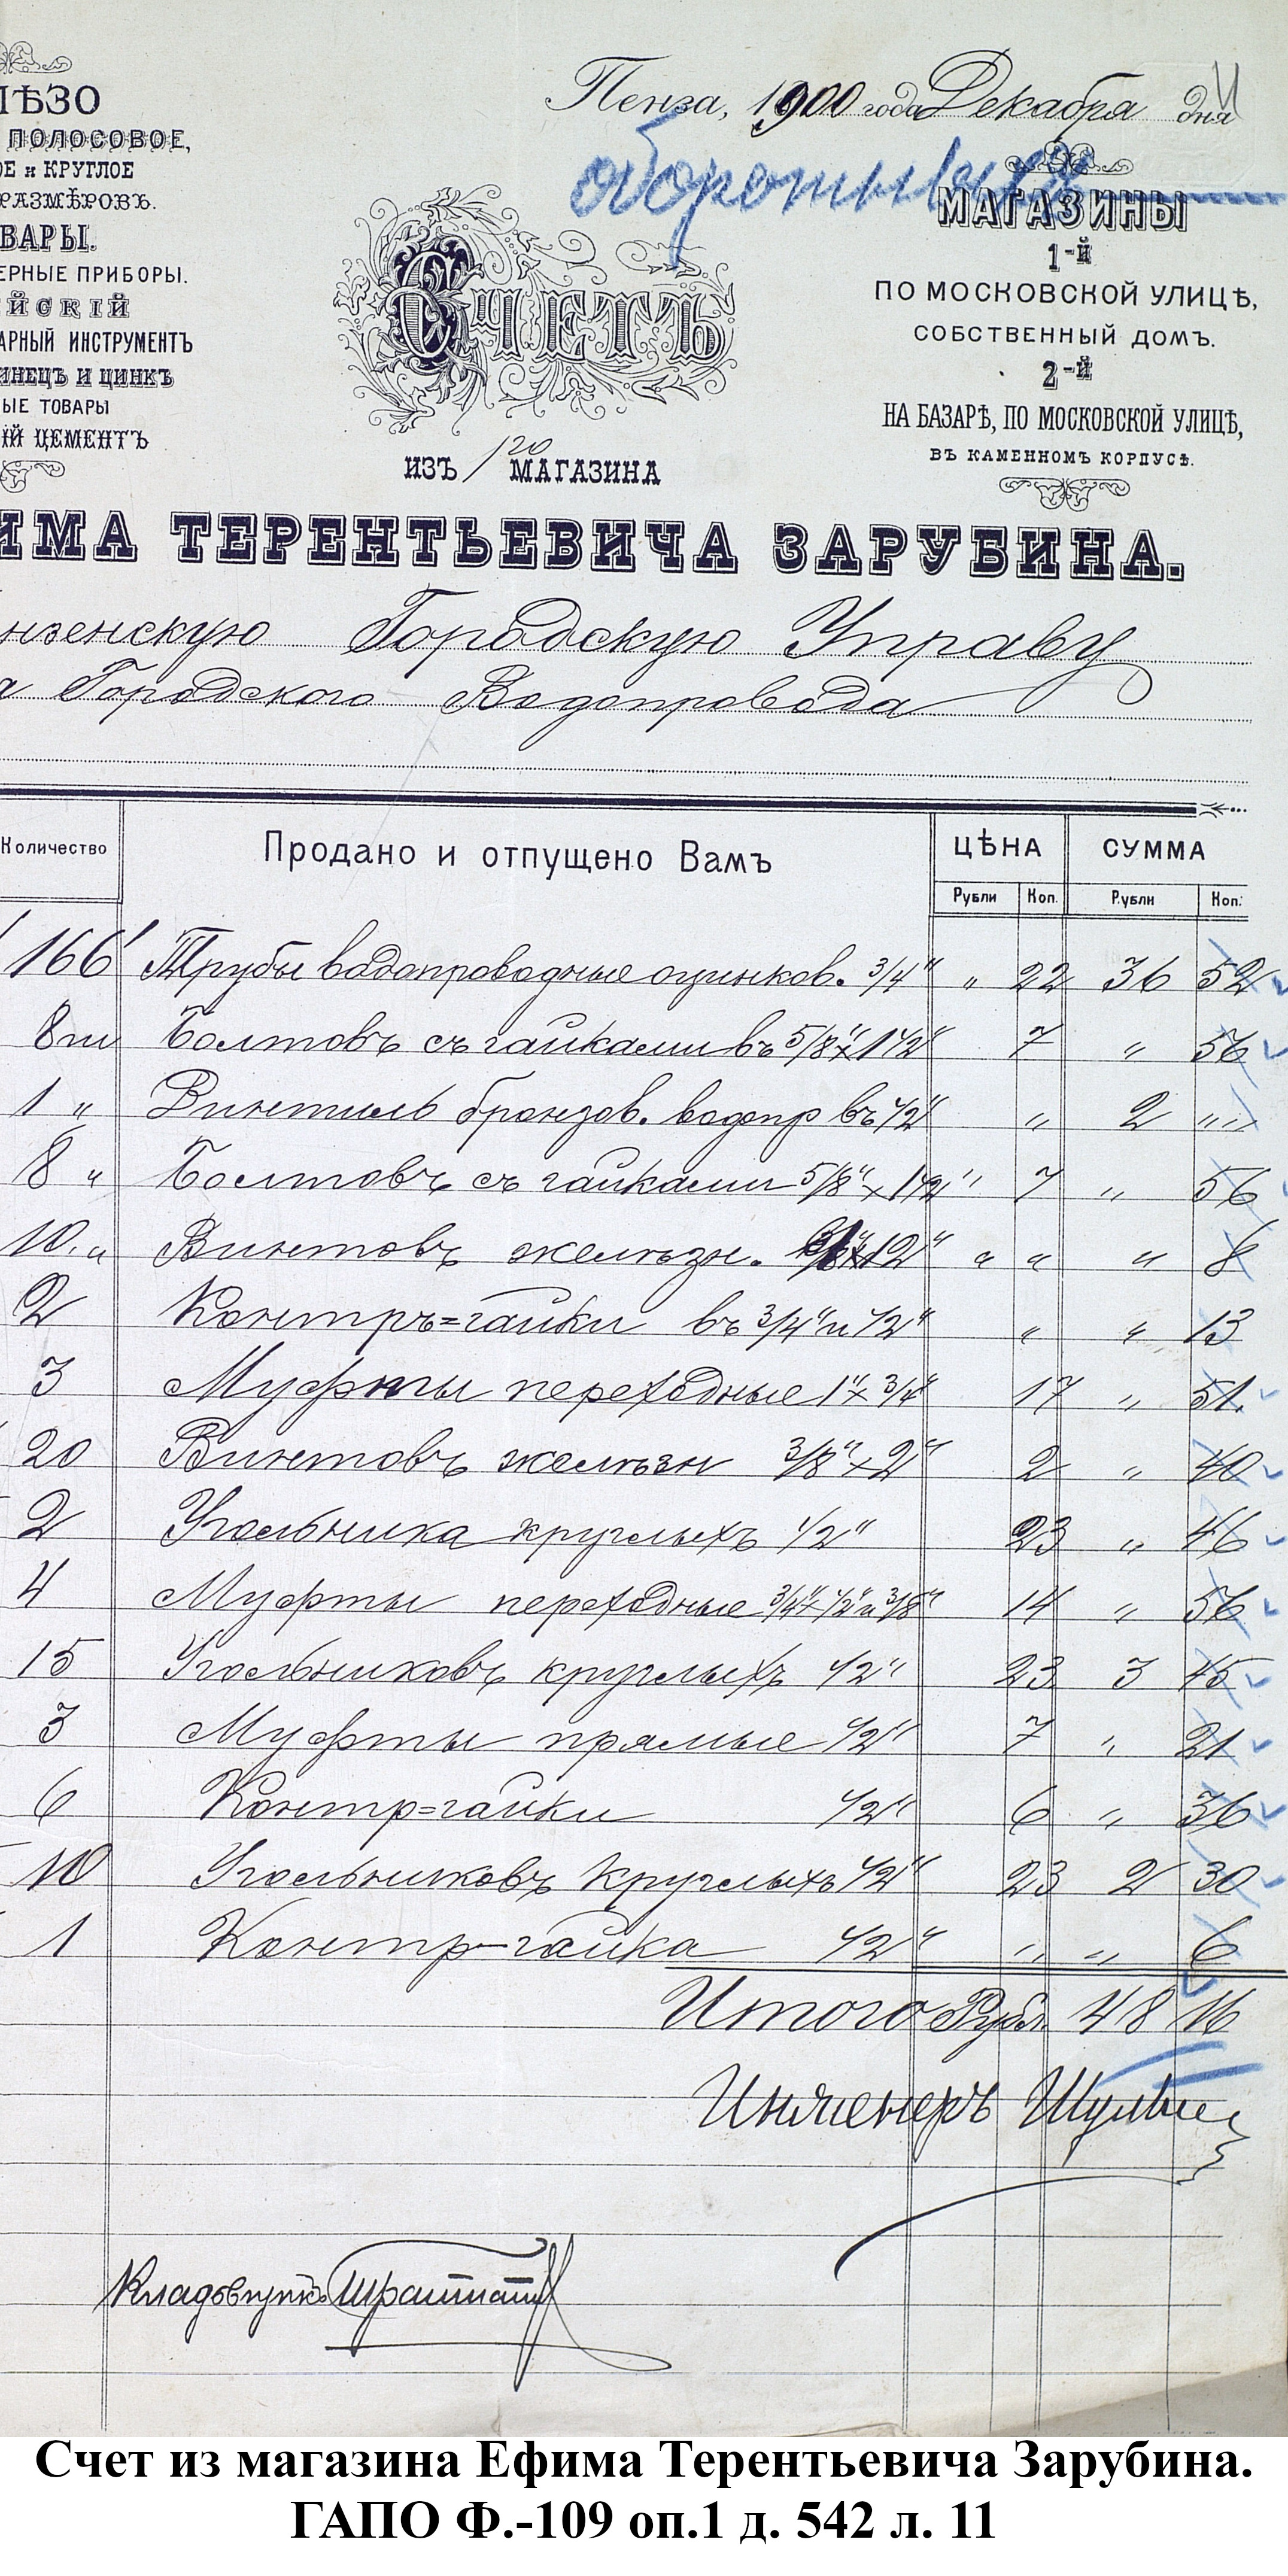 Пенза, 1900 года Декабря дня
ЛѢЗО
ПОЛОСОВОЕ,
ОЕ и КРУГЛОЕ
РАЗМѢРОВЪ.
ВАРЫ.
ЕРНЫЕ ПРИБОРЫ.
ЙСКІЙ
АРНЫЙ ИНСТРУМЕНТЪ
ИНЕЦЪ И ЦИНКЪ
ЫЕ ТОВАРЫ
ІЙ ЦЕМЕНТЪ
СЧЕТЪ
ИЗЪ 1го МАГАЗИНА
МАГАЗИНЫ
1-й
ПО МОСКОВСКОЙ УЛИЦѢ,
СОБСТВЕННЫЙ ДОМЪ.
2-й
НА БАЗАРѢ, ПО МОСКОВСКОЙ УЛИЦѢ,
ВЪ КАМЕННОМЪ КОРПУСѢ.
ИМА ТЕРЕНТЬЕВИЧА ЗАРУБИНА.
нзенскую Городскую Управу
а Городского Водопровода
Количество Продано и отпущено Вамъ ЦѢНА СУММА
Рубли Коп. Рубли Коп.
166' Трубы водопроводные оцинков. 3/4" " 22 36 52
8 шт Болтовъ съ гайками въ 5/8"x1 1/2" 7 " 56
1 " Винтиль бронзов. водопр въ 1/2" " 2 ""
8 " Болтовъ съ гайками 5/8"x1 1/2" " 7 " 56
10 " Винтовъ желѣзн. " " " 8
2 Контръ=гайки въ 3/4" и 1/2" " " 13
3 Муфты переходные 1"x3/4" 17 " 51.
20 Винтовъ желѣзн 3/8"x2" 2 " 40
2 Угольника круглыхъ 1/2" 23 " 46
4 Муфты переходные 3/4"x1/2" и 3/8" 14 " 56
15 Угольниковъ круглыхъ 1/2" 23 3 45
3 Муфты прямые 1/2" 7 " 21
6 Контр=гайки 1/2" 6 " 36
10 Угольниковъ круглыхъ 1/2" 23 2 30
1 Контр-гайка 1/2" " " 6
Итого Рубл. 48 16
Инженеръ
Кладовщикъ
Счет из магазина Ефима Терентьевича Зарубина.
ГАПО Ф.-109 оп.1 д. 542 л. 11